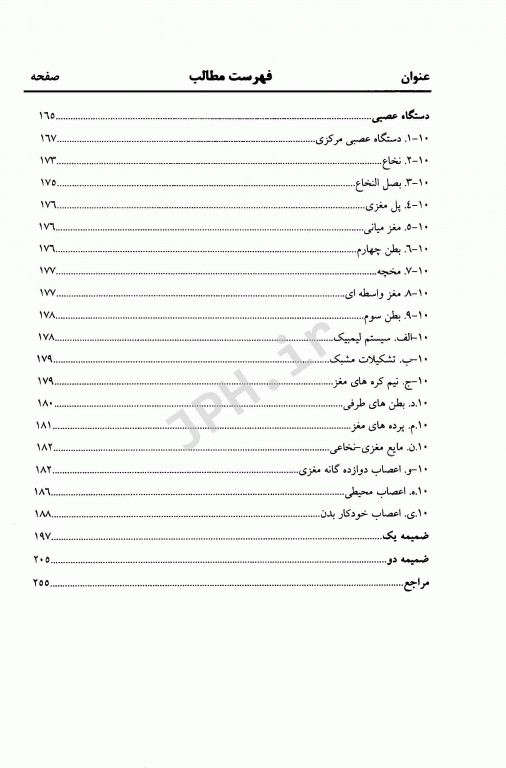 عنوان فهرست مطالب صفحه
دستگاه عصبی....................۱۶۵
۱-۱۰. دستگاه عصبی مرکزی....................۱۶۷
۲-۱۰. نخاع....................۱۷۳
۳-۱۰. بصل النخاع....................۱۷۵
۴-۱۰. پل مغزی....................۱۷۶
۵-۱۰. مغز میانی....................۱۷۶
۶-۱۰. بطن چهارم....................۱۷۶
۷-۱۰. مخچه....................۱۷۷
۸-۱۰. مغز واسطه ای....................۱۷۷
۹-۱۰. بطن سوم....................۱۷۸
۱۰-الف. سیستم لیمبیک....................۱۷۸
۱۰-ب. تشکیلات مشبک....................۱۷۹
۱۰-ج. نیم کره های مغز....................۱۷۹
۱۰.د. بطن های طرفی....................۱۸۰
۱۰.م. پرده های مغز....................۱۸۱
۱۰.ن. مایع مغزی-نخاعی....................۱۸۲
۱۰-و. اعصاب دوازده گانه مغزی....................۱۸۲
۱۰.ه. اعصاب محیطی....................۱۸۶
۱۰.ی. اعصاب خودکار بدن....................۱۸۸
ضمیمه یک....................۱۹۷
ضمیمه دو....................۲۰۵
مراجع....................۲۵۵
JPH.ir